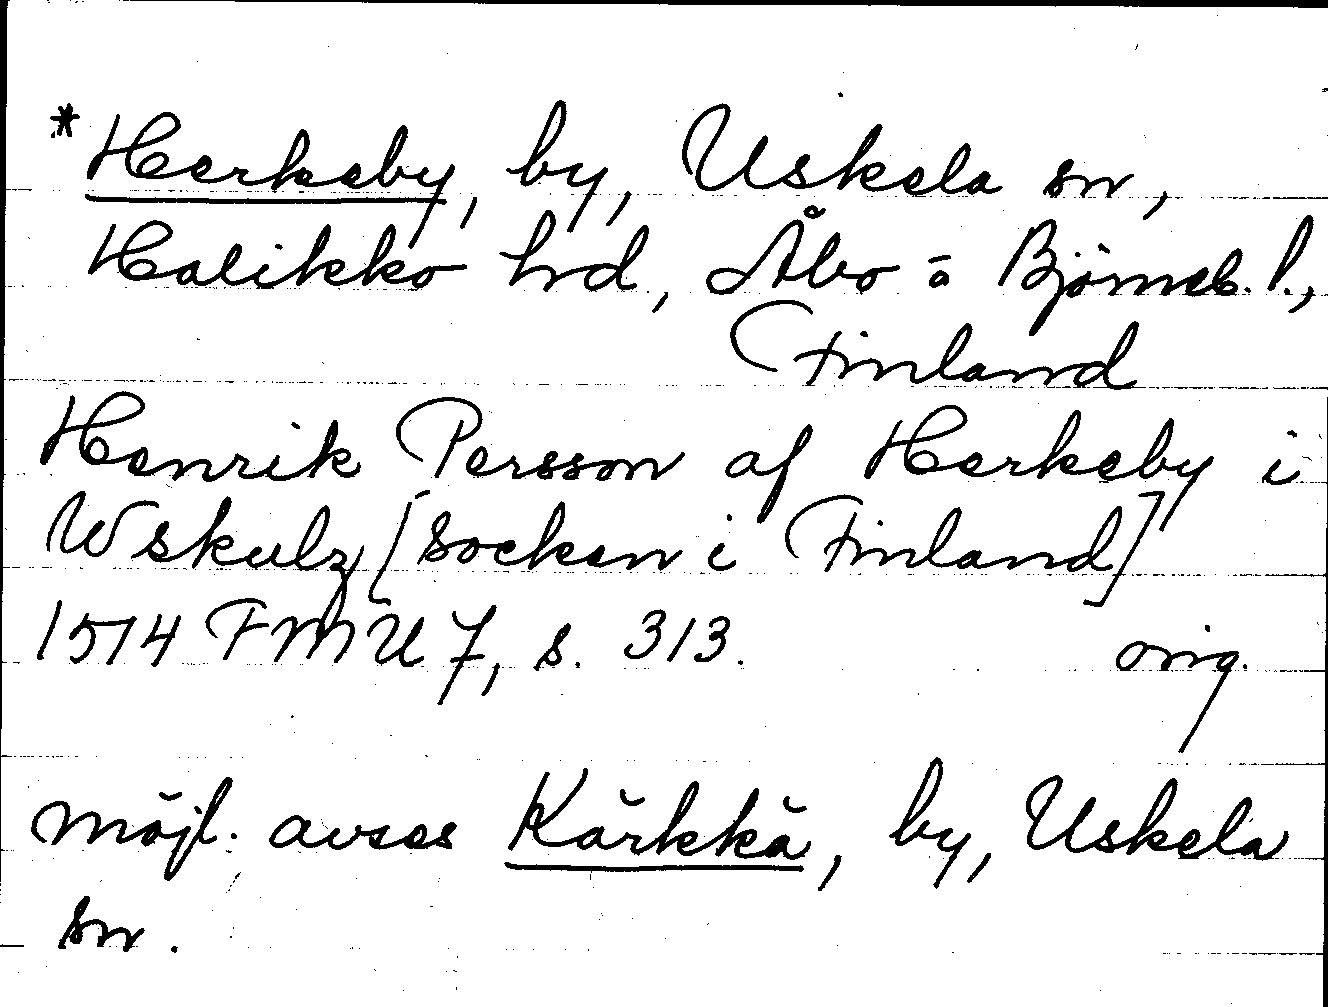 *Herkeby, by, Uskela sn,
Halikko hrd, Åbo o Björneb. l.,
Finland
Henrik Persson af Herkeby i
Wskulz [socken i Finland]
1514 FMU 7, s. 313. orig.
möjl. avses Kärkkä, by, Uskela
sn.